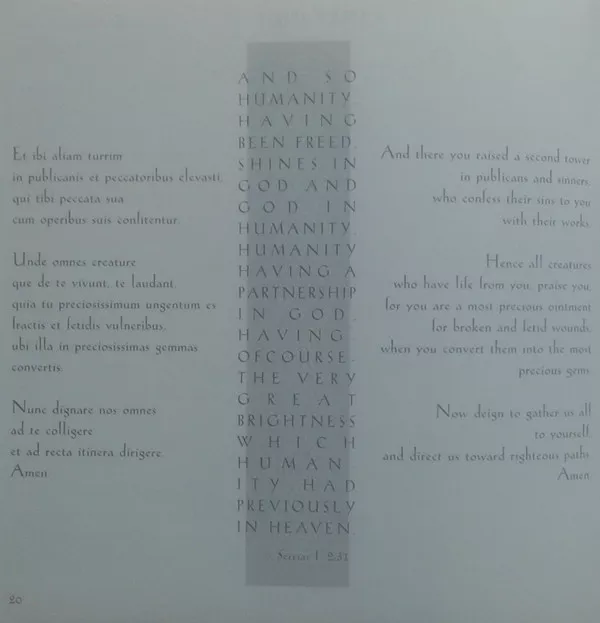 Et ibi aliam turrim
in publicanis et peccatoribus elevasti,
qui tibi peccata sua
cum operibus suis confitentur.
Unde omnes creature
que de te vivunt, te laudant,
quia tu preciosissimum ungentum es
fractis et fetidis vulneribus,
ubi illa in preciosissimas gemmas
convertis.
Nunc dignare nos omnes
ad te colligere
et ad recta itinera dirigere.
Amen
AND SO
HUMANITY
HAVING
BEEN FREED,
SHINES IN
GOD AND
GOD IN
HUMANITY.
HUMANITY
HAVING A
PARTNERSHIP
IN GOD,
HAVING
OFCOURSE,
THE VERY
GREAT
BRIGHTNESS
WHICH
HUMAN
ITY HAD
PREVIOUSLY
IN HEAVEN.
Scivias I 2:31
And there you raised a second tower
in publicans and sinners,
who confess their sins to you
with their works.
Hence all creatures
who have life from you, praise you,
for you are a most precious ointment
for broken and fetid wounds,
when you convert them into the most
precious gems.
Now deign to gather us all
to yourself,
and direct us toward righteous paths.
Amen.
20